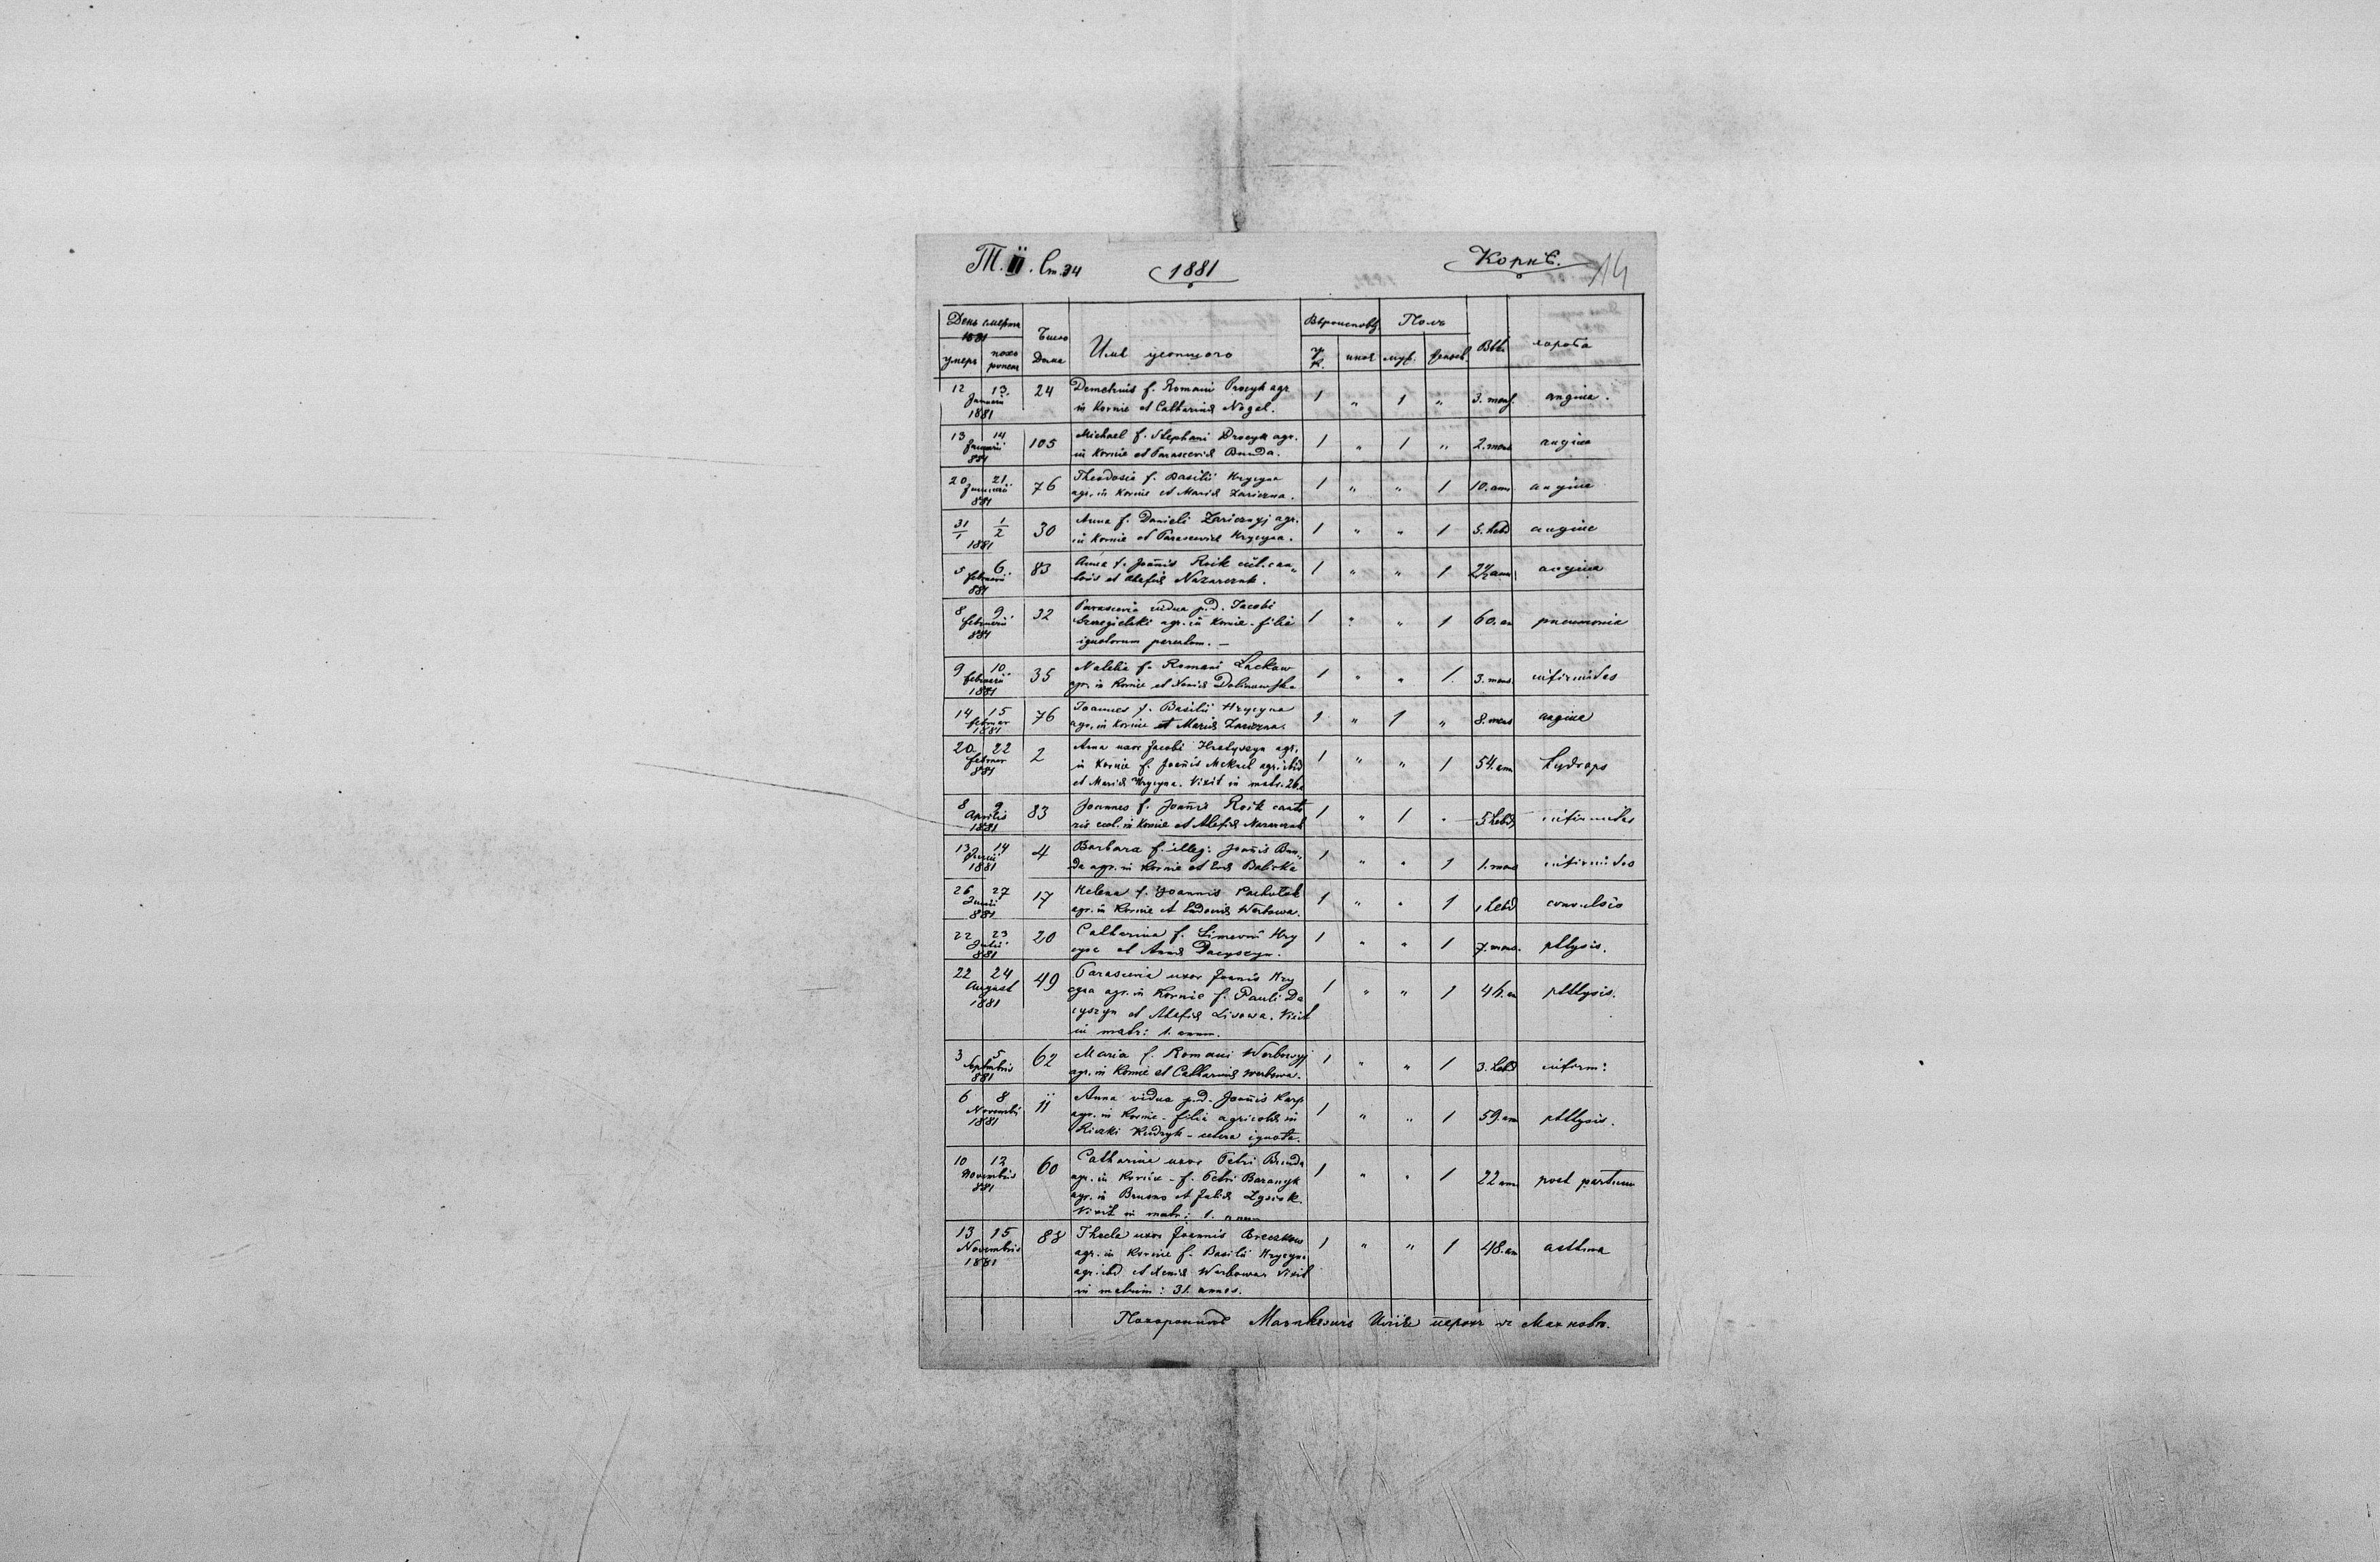 Т. II. Ст. 34
1881
Корнѣ.
14
День смерти
1881
умеръ похо роненъ
Число Дома
Имя усопшого
Вѣроисповѣд.
гр. к. иноя
Полъ
муж. женск.
Вѣкъ
хороба
12 13. Januarii 1881 24 Demetrius f. Romani Procyk agr. 1 " 1 " 3. mens. angina.
in Kornie et Catharinæ Nogal.
13 14 Januarii 881 105 Michael f. Stephani Drozyk agr. 1 " 1 " 2. mens angina
in Kornie et Parasceviæ Bunda.
20 21. Januarii 881 76 Theodosia f. Basilii Hrycyna 1 " " 1 10. ann angina
agr. in Kornie et Mariæ Zariczna.
31/1 1/2 1881 30 Anna f. Danieli Zaricznyj agr. 1 " " 1 5. hebd angina
in Kornie et Parasceviæ Hrycyna.
5 6. Februarii 881 83 Anna f. Joañis Roik 1 " " 1 2½ ann angina
toris et Alexiæ Nazarczuk.
8 9. Februarii 881 32 Parascevia vidua p.d. Jacobi 1 " " 1 60. an pneumonia
agr. in Kornie - filia
ignotorum parentum. —
9 10. Februarii 1881 35 Natalia f. Romani Lackaw 1 " " 1. 3. mens. infirmitas
agr. in Kornie et Xeniæ Dolinowska
14 15 Februar 1881 76 Joannes f. Basilii Hrycyna 1 " 1 " 8. mens angina
agr. in Kornie et Mariæ Zariczna.
20 22 Februar 881 2 Anna uxor Jacobi Hratyszyn agr. 1 " " 1 54. ann hydrops
in Kornie f. Joañis agr. ibid
et Mariæ Hrycyna. Vixit in matr. 26.
8 9 Aprilis 1881 83 Joannes f. Joañis Roik canto 1 " 1 " 5 hebd infirmitas
ris eccl. in Kornie et Alexiæ Nazarczuk
13 14 Junii 1881 4 Barbara f. illeg: Joañis Bun 1 " " 1 1. mens infirmitas
da agr. in Kornie et Evæ Babska
26 27 Junii 881 17 Helena f. Joannis Pacholok 1 " " 1 1 hebd convulsio
agr. in Kornie et Eudociæ Werbowa.
22 23 Julii 881 20 Catharina f. Simeonii Hry 1 " " 1 7. mens. phtysis.
cyna et Annæ Dacyszyn.
22 24 August 1881 49 Parascevia uxor Joanis Hry 1 " " 1 46. an phtysis.
cyna agr. in Kornie f. Pauli Da
cyszyn et Alexiæ Lisowa. Vixit
in matr: 1. annum.
3 5 Septembris 881 62 Maria f. Romani Werbowyj 1 " " 1 3. hebd infirm:
agr. in Kornie et Catharinæ Werbowa.
6 8 Novembris 1881 11 Anna vidua p.d. Joañis Karp 1 " " 1 59. ann phtysis.
agr. in Kornie - filia agricolæ in
Riczki Kudryk - cetera ignota.
10 12 Novembris 881 60 Catharina uxor Petri Bunda 1 " " 1 22 ann post partum
agr. in Kornie - f. Petri Baranyk
agr. in Brusno et Juliæ Zysiok.
Vixit in matr: 1. annum
13 15 Novembris 1881 88 Thecla uxor Joannis 1 " " 1 48. an asthma
agr. in Kornie f. Basilii Hrycyna
agr. ibd et Xeniæ Werbowa. Vixit
in matrim: 31. annos.
Похоронилъ Илія въ Махновѣ.